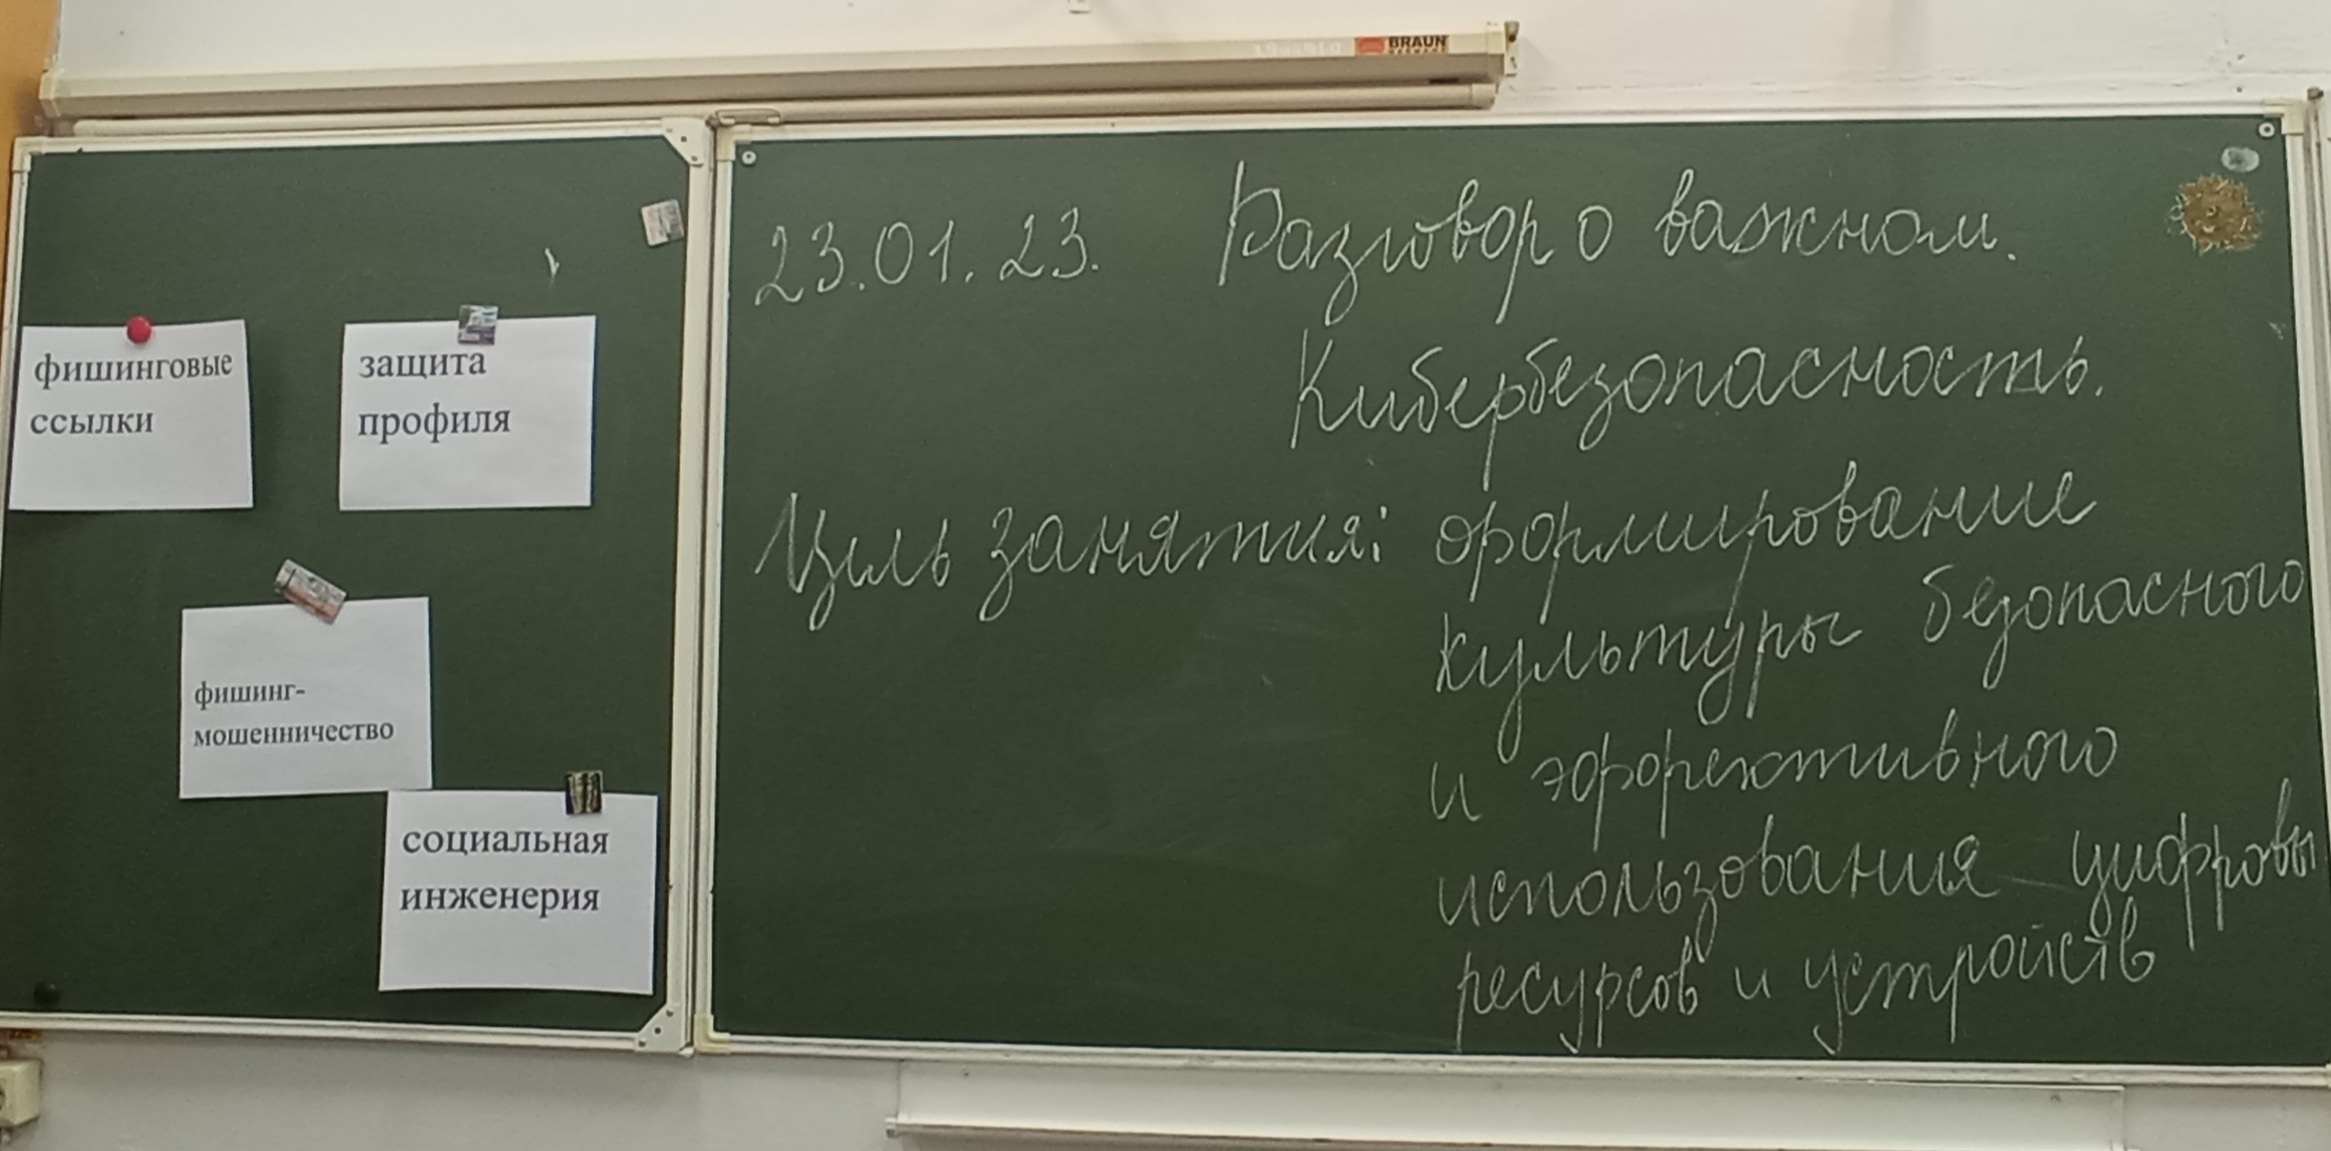 BRAUN
фишинговые
ссылки
защита
профиля
фишинг-
мошенничество
социальная
инженерия
23.01.23. Разговор о важном.
Кибербезопасность.
Цель занятия: формирование
культуры безопасного
и эффективного
использования цифровы
ресурсов и устройств